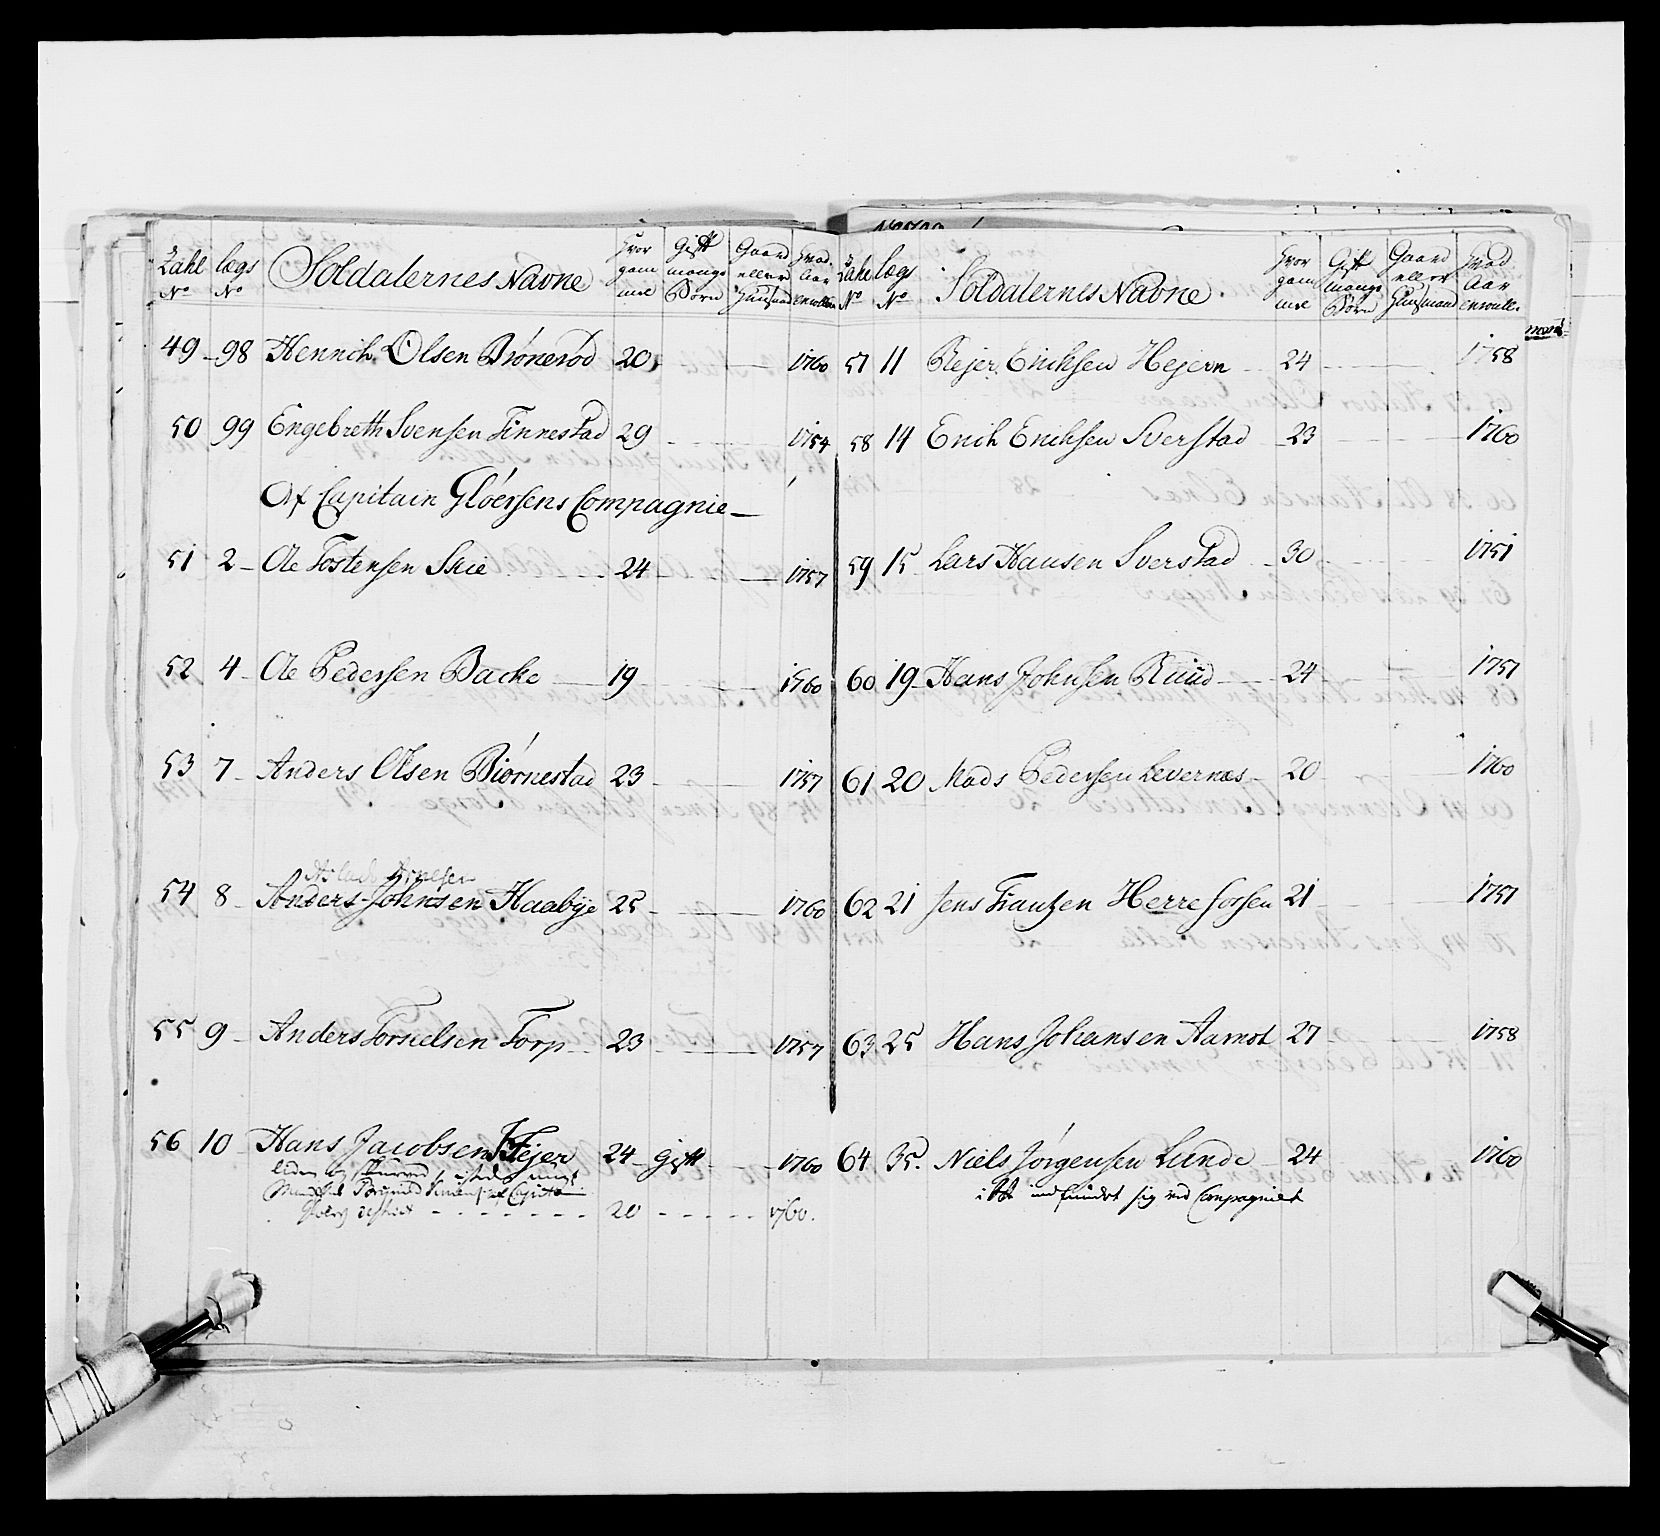 Zahl No
lægs No
Soldaternes Navne
Hvor gam̄ mel
Gift mange Børn
Gaard eller Huusmand
Hvad Aar enroull.
49 98 Hennich Olsen Brønerød 20 1760
50 99 Engebreth Svensen Finnestad 29 1754
Af Capitain Gløersens Compagnie
51 2 Ole Tostensen Skie 24 1757
52 4 Ole Pedersen Backe 19 1760
53 7 Anders Olsen Biørnestad 23 1757
Aslach Arnesen
54 8 Anders Johnsen Haabye 25 1760
55 9 Anders Torkielsen Torp 23 1757
56 10 Hans Jacobsen Hejer 24 Gift 1760
20 1760.
Zahl No
lægs No
Soldaternes Navne
Hvor gam̄ mel
Gift mange Børn
Gaard eller Huusmand
Hvad Aar enroull.
57 11 Rejer Erichsen Hejern 24 1758
58 14 Erich Erichsen Sverstad 23 1760
59 15 Lars Hansen Sverstad 30 1751
60 19 Hans Johnsen Ruud 24 1757
61 20 Mads Pedersen Levernæs 20 1760
62 21 Jens Frantzen Herrefossen 21 1757
63 25 Hans Johansen Aamot 27 1758
64 35. Niels Jørgensen Lunde 24 1760
indfundet sig ved Compagniet